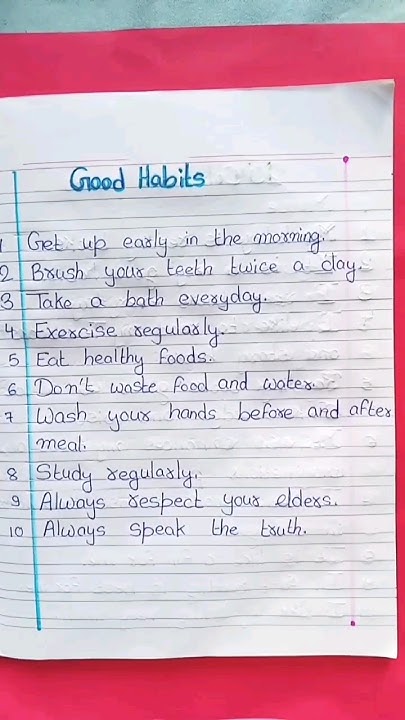 Good Habits
1 Get up early in the morning.
2 Brush your teeth twice a day.
3 Take a bath everyday.
4 Exercise regularly.
5 Eat healthy foods.
6 Don't waste food and water.
7 Wash your hands before and after
meal.
8 Study regularly.
9 Always respect your elders.
10 Always speak the truth.